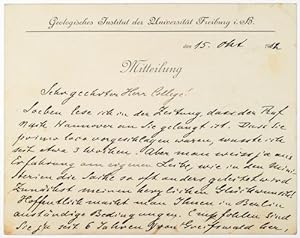 Geologisches Institut der Universität Freiburg i. B.
den 15. Okt 12
Mitteilung
Sehr geehrter Herr College!
Soeben lese ich in der Zeitung, dass der Ruf
nach Hannover an Sie gelangt ist. Dass Sie
primo loco vorgeschlagen waren, wusste ich
seit etwa 3 Wochen. Aber man weiss ja aus
Erfahrung am eigenen Leibe, wie in den Mini-
sterien die Sache so oft anders geleitet wird.
Zunächst meinen herzlichen Glückwunsch!
Hoffentlich macht man Ihnen in Berlin
anständige Bedingungen. Empfohlen sind
Sie ja seit 6 Jahren von Greifswald her.